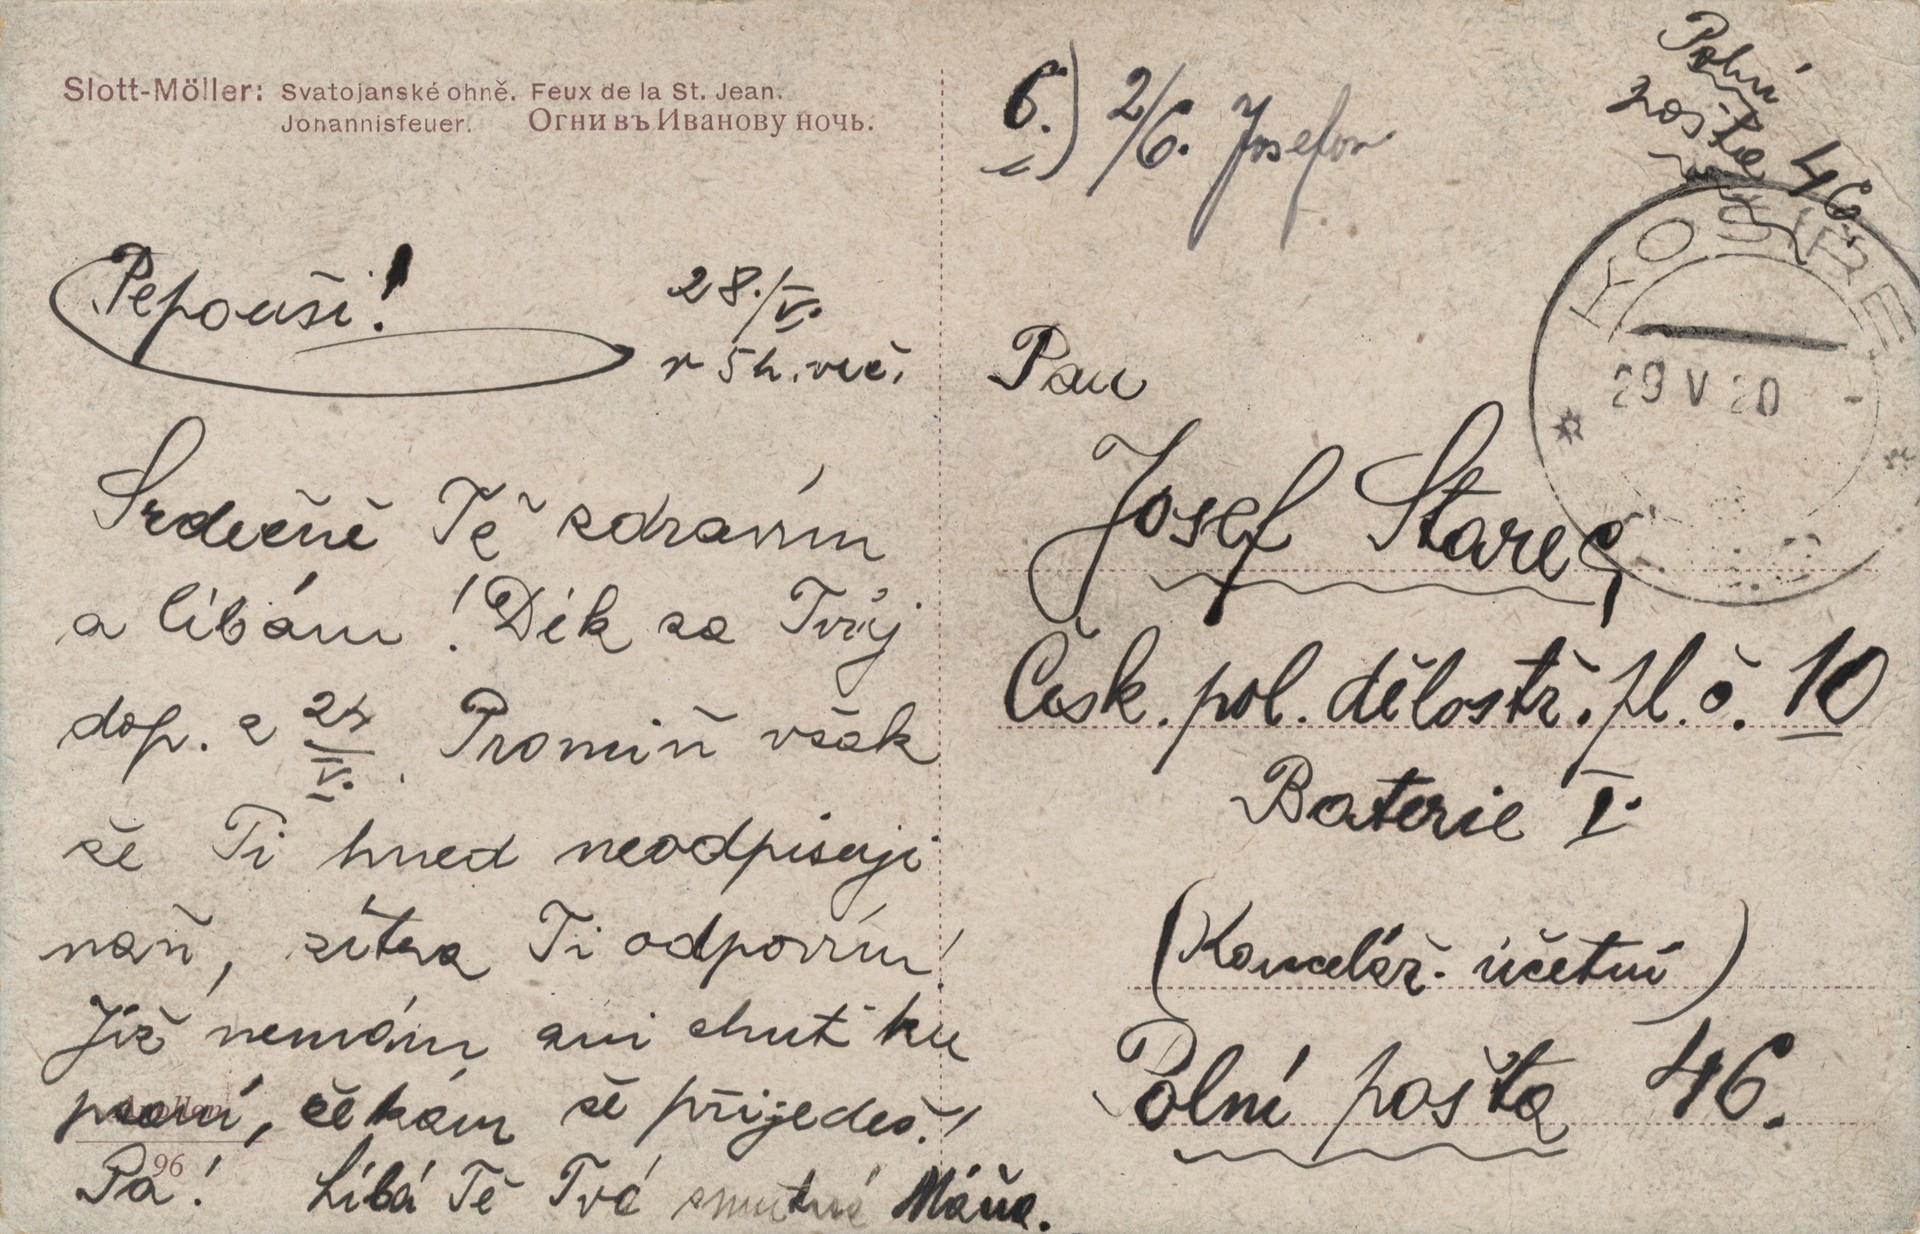 Slott-Möller: Svatojanské ohně. Feux de la St. Jean.
Johannisfeuer. Огни въ Иванову ночь.
6.) 2/6. Josefov
Polní
pošta 46.
Pepouši!
28./V.
v 5h. več.
Srdečně Tě zdravím
a líbám! Dík za Tvůj
dop. z 24/V. Promiň však
že Ti hned neodpisuji
naň, zítra Ti odpovím!
Již nemám ani chuť ku
psaní, čekám že přijedeš!
Pá! Líbá Tě Tvá smutná Máňa.
96
KO
29 V 20
Pan
Josef Starec,
Česk. pol. dělostř. pl. č. 10
Baterie I.
(Kancelář účetní)
Polní pošta 46.